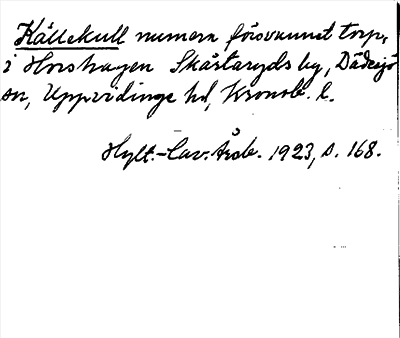 Källekull numera försvunnet torp,
i Horshagen Skårtaryds by, Dädesjö
sn, Uppvidinge hd, Kronob. l.
Hylt.-Cav. årsb. 1923, s. 168.